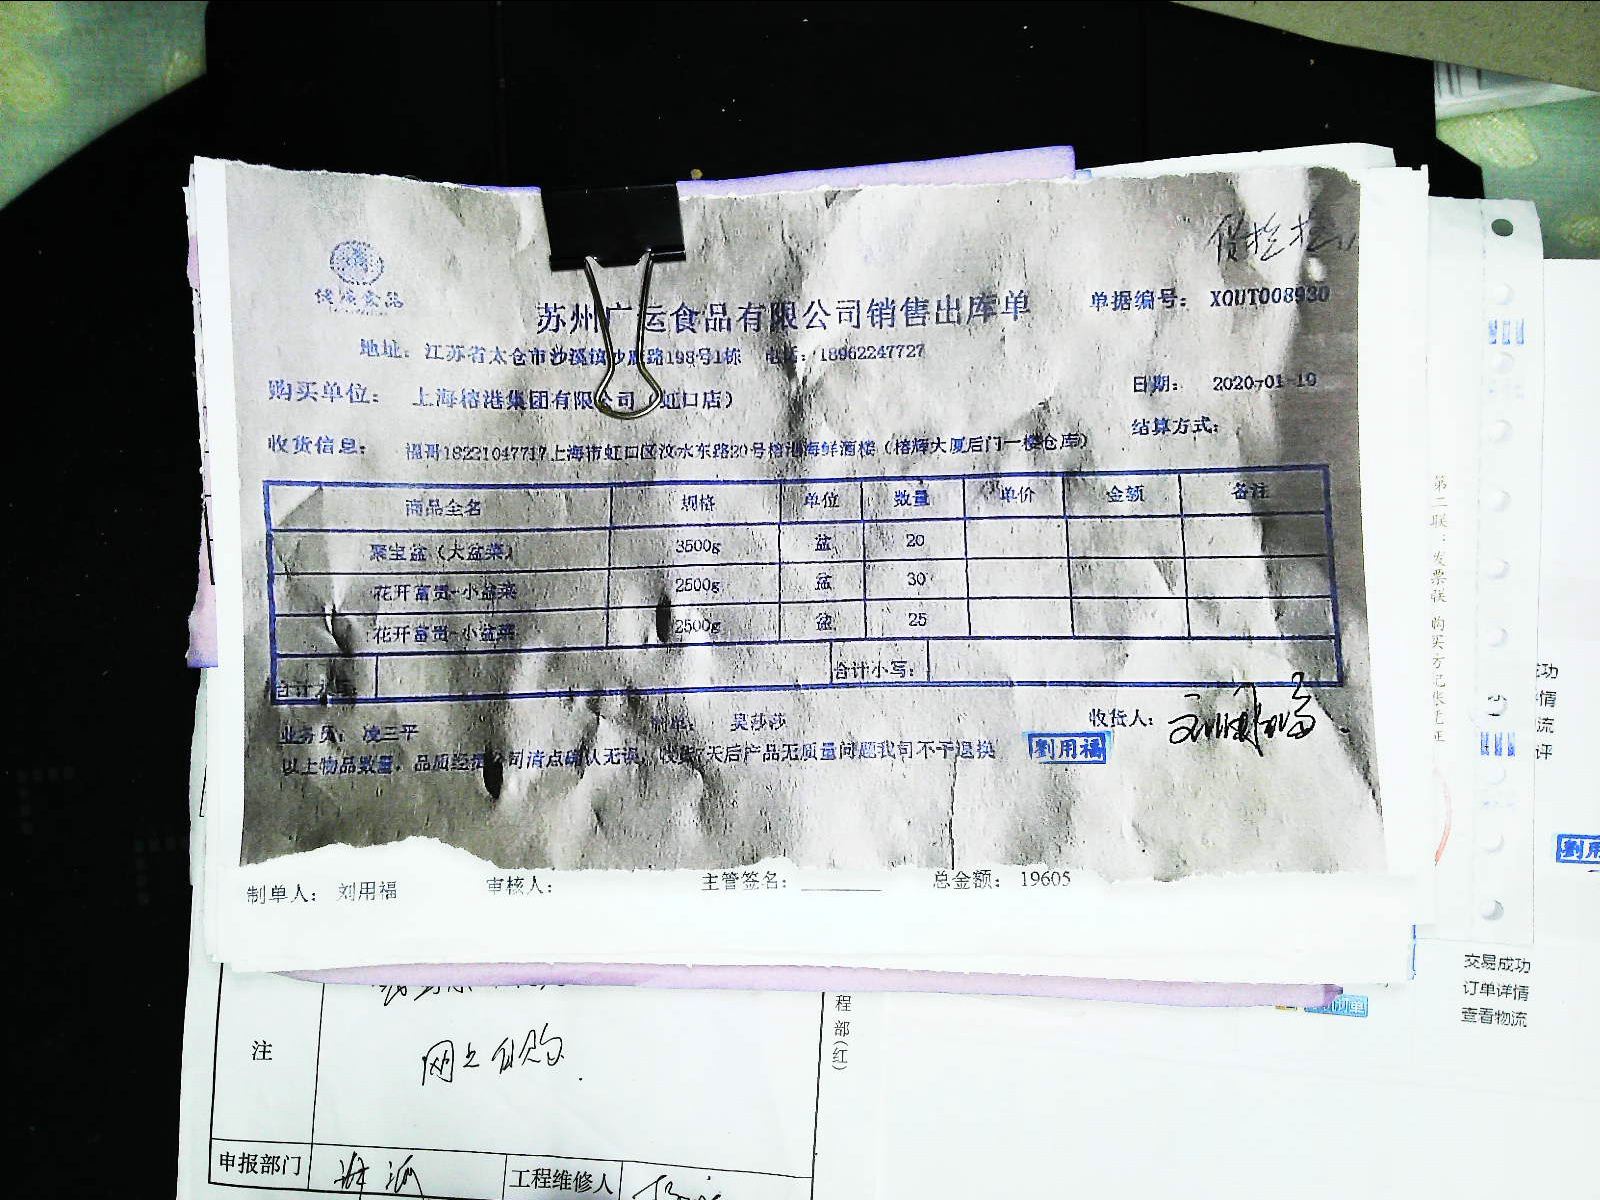 食品
苏州广运食品有限公司销售出库单
单据编号: XOUT008930
地址: 江苏省太仓市沙溪镇沙 路198号1栋 电话: 18962247727
购买单位: 上海榕港集团有限公司(虹口店)
日期: 2020-01-10
结算方式:
收货信息: 福哥18221047717上海市虹口区汶水东路20号榕港海鲜酒楼(榕辉大厦后门一楼仓库)
商品全名 规格 单位 数量 单价 金额 备注
聚宝盆(大盆菜) 3500g 盆 20
花开富贵-小盆菜 2500g 盆 30
花开富贵-小盆菜 2500g 盆 25
合计大写: 合计小写:
业务员: 凌三平 制单: 吴莎莎 收货人: 刘用福
以上物品数量、品质经 公司清点确认无误, 收货7天后产品无质量问题我司不予退换 劉用福
制单人: 刘用福 审核人: 主管签名: 总金额: 19605
第二联:发票联 购买方记账凭证
成功
情
流
评
劉用
交易成功
订单详情
查看物流
程部(红)
注
网上自购
申报部门 工程维修人